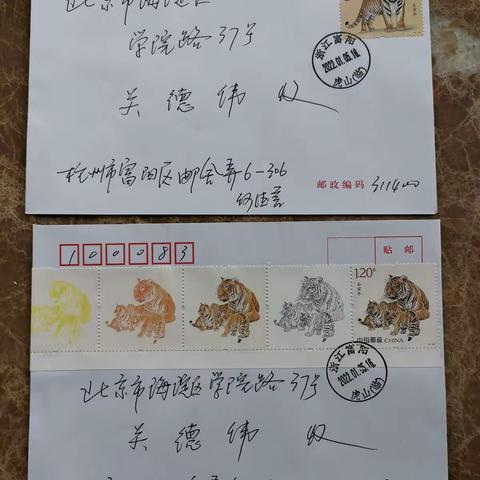 北京市海淀区
学院路37号
关德纬 收
浙江富阳
2022.01.05.18
虎山(临)
杭州市富阳区邮舍弄6-306
邮政编码 311400
100083
贴 邮
120
中国邮政 CHINA
浙江富阳
2022.01.05.18
虎山(临)
北京市海淀区学院路37号
关德纬 收